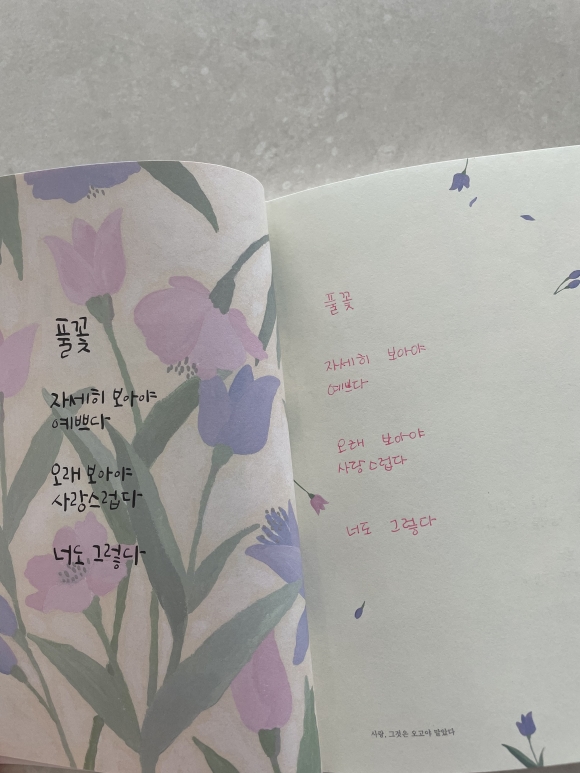 풀꽃
자세히 보아야
예쁘다
오래 보아야
사랑스럽다
너도 그렇다
풀꽃
자세히 보아야
예쁘다
오래 보아야
사랑스럽다
너도 그렇다
사랑, 그것은 오고야 말았다